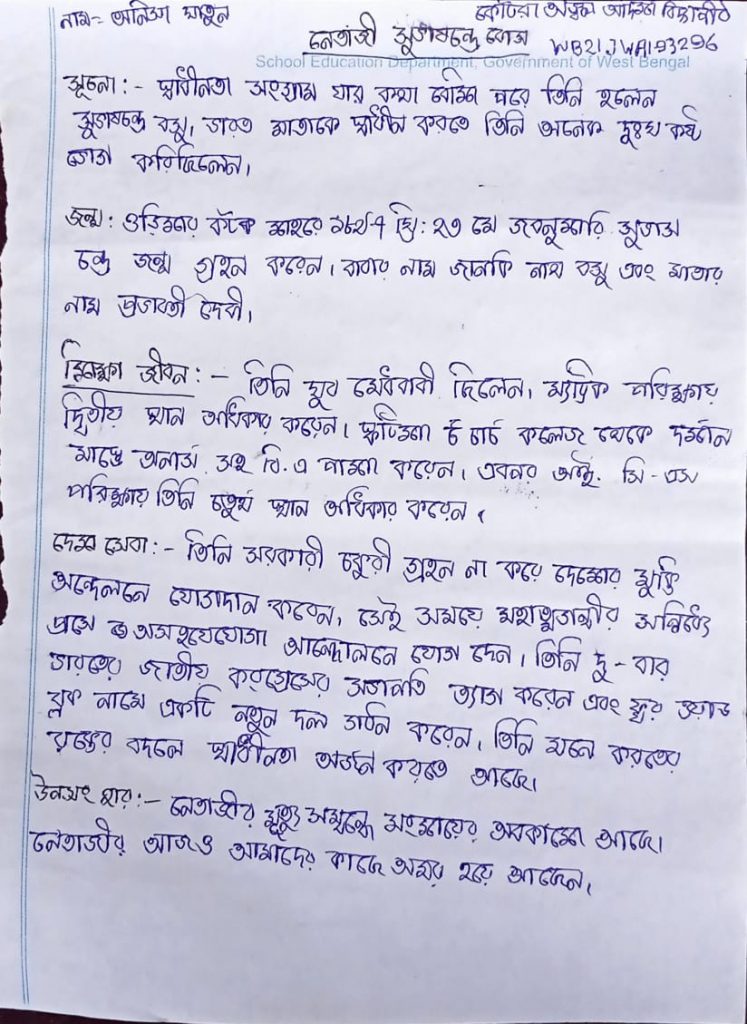 নাম:- অনিতা খাতুন
কোটরা অঞ্চল আদর্শ বিদ্যাপীঠ
নেতাজী সুভাষচন্দ্র বোস
WB21JWA193296
School Education Department, Government of West Bengal
সূচনা:- স্বাধীনতা সংগ্রাম যার কথা বেশি পরে তিনি হলেন
সুভাষচন্দ্র বসু, ভারত মাতাকে স্বাধীন করতে তিনি অনেক দুঃখ কষ্ট
ভোগ করিছিলেন।
জন্ম: ওড়িশার কটক শহরে ১৮৯৭ খ্রি: ২৩ শে জানুয়ারি সুভাস
চন্দ্র জন্ম গ্রহন করেন। বাবার নাম জানকি নাথ বসু এবং মাতার
নাম প্রভাবতী দেবী।
শিক্ষা জীবন:- তিনি খুব মেধবাবী ছিলেন, ম্যাট্রিক পরিক্ষায়
দ্বিতীয় স্থান অধিকার করেন। স্কটিশ চার্চ কলেজ থেকে দর্শন
শাস্ত্রে অনার্স সহ বি.এ পাশ করেন। এবনর আই. সি-এস
পরিক্ষায় তিনি চতুর্থ স্থান অধিকার করেন।
দেশ সেবা:- তিনি সরকারী চাকুরী গ্রহন না করে দেশের মুক্তি
আন্দেলনে যোগাদান করেন, সেই সময়ে মহাত্মাগান্ধীর সান্নিধ্যে
এসে অসহযোগ আন্দোলনে যোগ দেন। তিনি দু-বার
ভারতের জাতীয় কংগ্রেসের সভাপতি ত্যাগ করেন এবং ফর ওয়ার্ড
ব্লক নামে একটি নতুন দল গঠন করেন, তিনি মনে করতের
রক্তের বদলে স্বাধীনতা অর্জন করতে আছে।
উপসংহার:- নেতাজীর মৃত্যু সম্বন্ধে সংশয়ের অবকাশ আছে।
নেতাজীর আজও আমাদের কাছে অমর হয়ে আছেন।